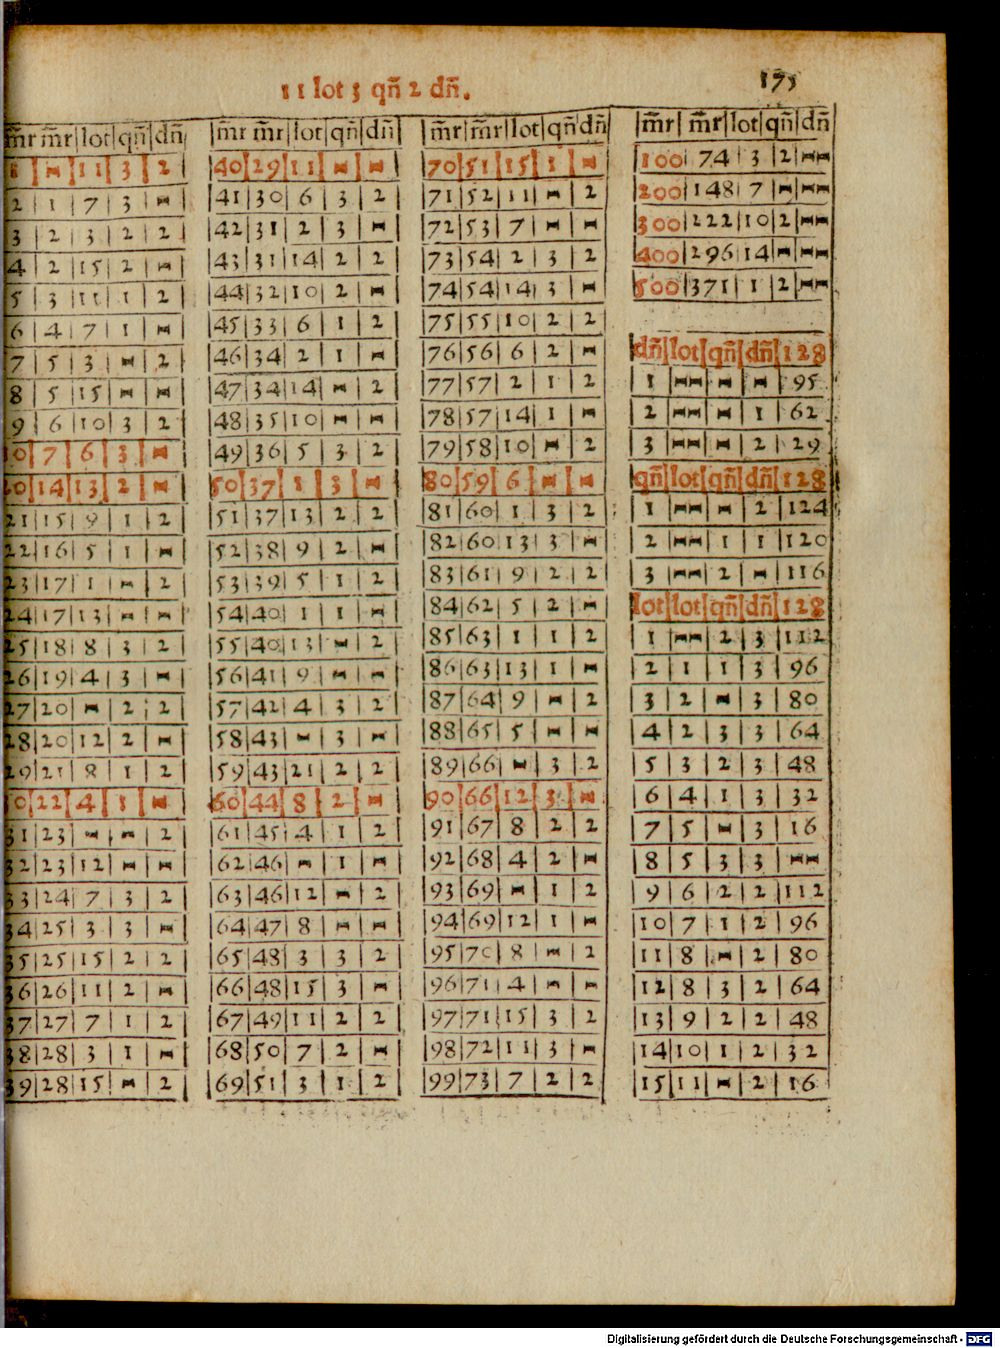 11 lot 3 qñ 2 dñ.
173
m̃r m̃r lot qñ dñ
1 – 11 3 2
2 1 7 3 –
3 2 3 2 2
4 2 15 2 –
5 3 11 1 2
6 4 7 1 –
7 5 3 – 2
8 5 15 – –
9 6 10 3 2
10 7 6 3 –
20 14 13 2 –
21 15 9 1 2
22 16 5 1 –
23 17 1 – 2
24 17 13 – –
25 18 8 3 2
26 19 4 3 –
27 20 – 2 2
28 20 12 2 –
29 21 8 1 2
30 22 4 1 –
31 23 – – 2
32 23 12 – –
33 24 7 3 2
34 25 3 3 –
35 25 15 2 2
36 26 11 2 –
37 27 7 1 2
38 28 3 1 –
39 28 15 – 2
m̃r m̃r lot qñ dñ
40 29 11 – –
41 30 6 3 2
42 31 2 3 –
43 31 14 2 2
44 32 10 2 –
45 33 6 1 2
46 34 2 1 –
47 34 14 – 2
48 35 10 – –
49 36 5 3 2
50 37 1 3 –
51 37 13 2 2
52 38 9 2 –
53 39 5 1 2
54 40 1 1 –
55 40 13 – 2
56 41 9 – –
57 42 4 3 2
58 43 – 3 –
59 43 21 2 2
60 44 8 2 –
61 45 4 1 2
62 46 – 1 –
63 46 12 – 2
64 47 8 – –
65 48 3 3 2
66 48 15 3 –
67 49 11 2 2
68 50 7 2 –
69 51 3 1 2
m̃r m̃r lot qñ dñ
70 51 15 1 –
71 52 11 – 2
72 53 7 – –
73 54 2 3 2
74 54 14 3 –
75 55 10 2 2
76 56 6 2 –
77 57 2 1 2
78 57 14 1 –
79 58 10 – 2
80 59 6 – –
81 60 1 3 2
82 60 13 3 –
83 61 9 2 2
84 62 5 2 –
85 63 1 1 2
86 63 13 1 –
87 64 9 – 2
88 65 5 – –
89 66 – 3 2
90 66 12 3 –
91 67 8 2 2
92 68 4 2 –
93 69 – 1 2
94 69 12 1 –
95 70 8 – 2
96 71 4 – –
97 71 15 3 2
98 72 11 3 –
99 73 7 2 2
m̃r m̃r lot qñ dñ
100 74 3 2 –
200 148 7 – –
300 222 10 2 –
400 296 14 – –
500 371 1 2 –
dñ lot qñ dñ 128
1 – – – 95
2 – – 1 62
3 – – 2 29
qñ lot qñ dñ 128
1 – – 2 124
2 – 1 1 120
3 – 2 – 116
lot lot qñ dñ 128
1 – 2 3 112
2 1 1 3 96
3 2 – 3 80
4 2 3 3 64
5 3 2 3 48
6 4 1 3 32
7 5 – 3 16
8 5 3 3 –
9 6 2 2 112
10 7 1 2 96
11 8 – 2 80
12 8 3 2 64
13 9 2 2 48
14 10 1 2 32
15 11 – 2 16
Digitalisierung gefördert durch die Deutsche Forschungsgemeinschaft - DFG